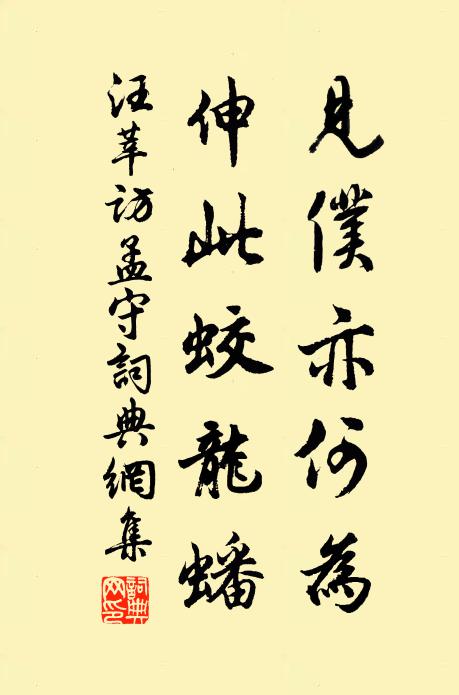 見僕亦何為
伸此蛟龍蟠
汪莘訪孟守詞典網集
詞典
网印